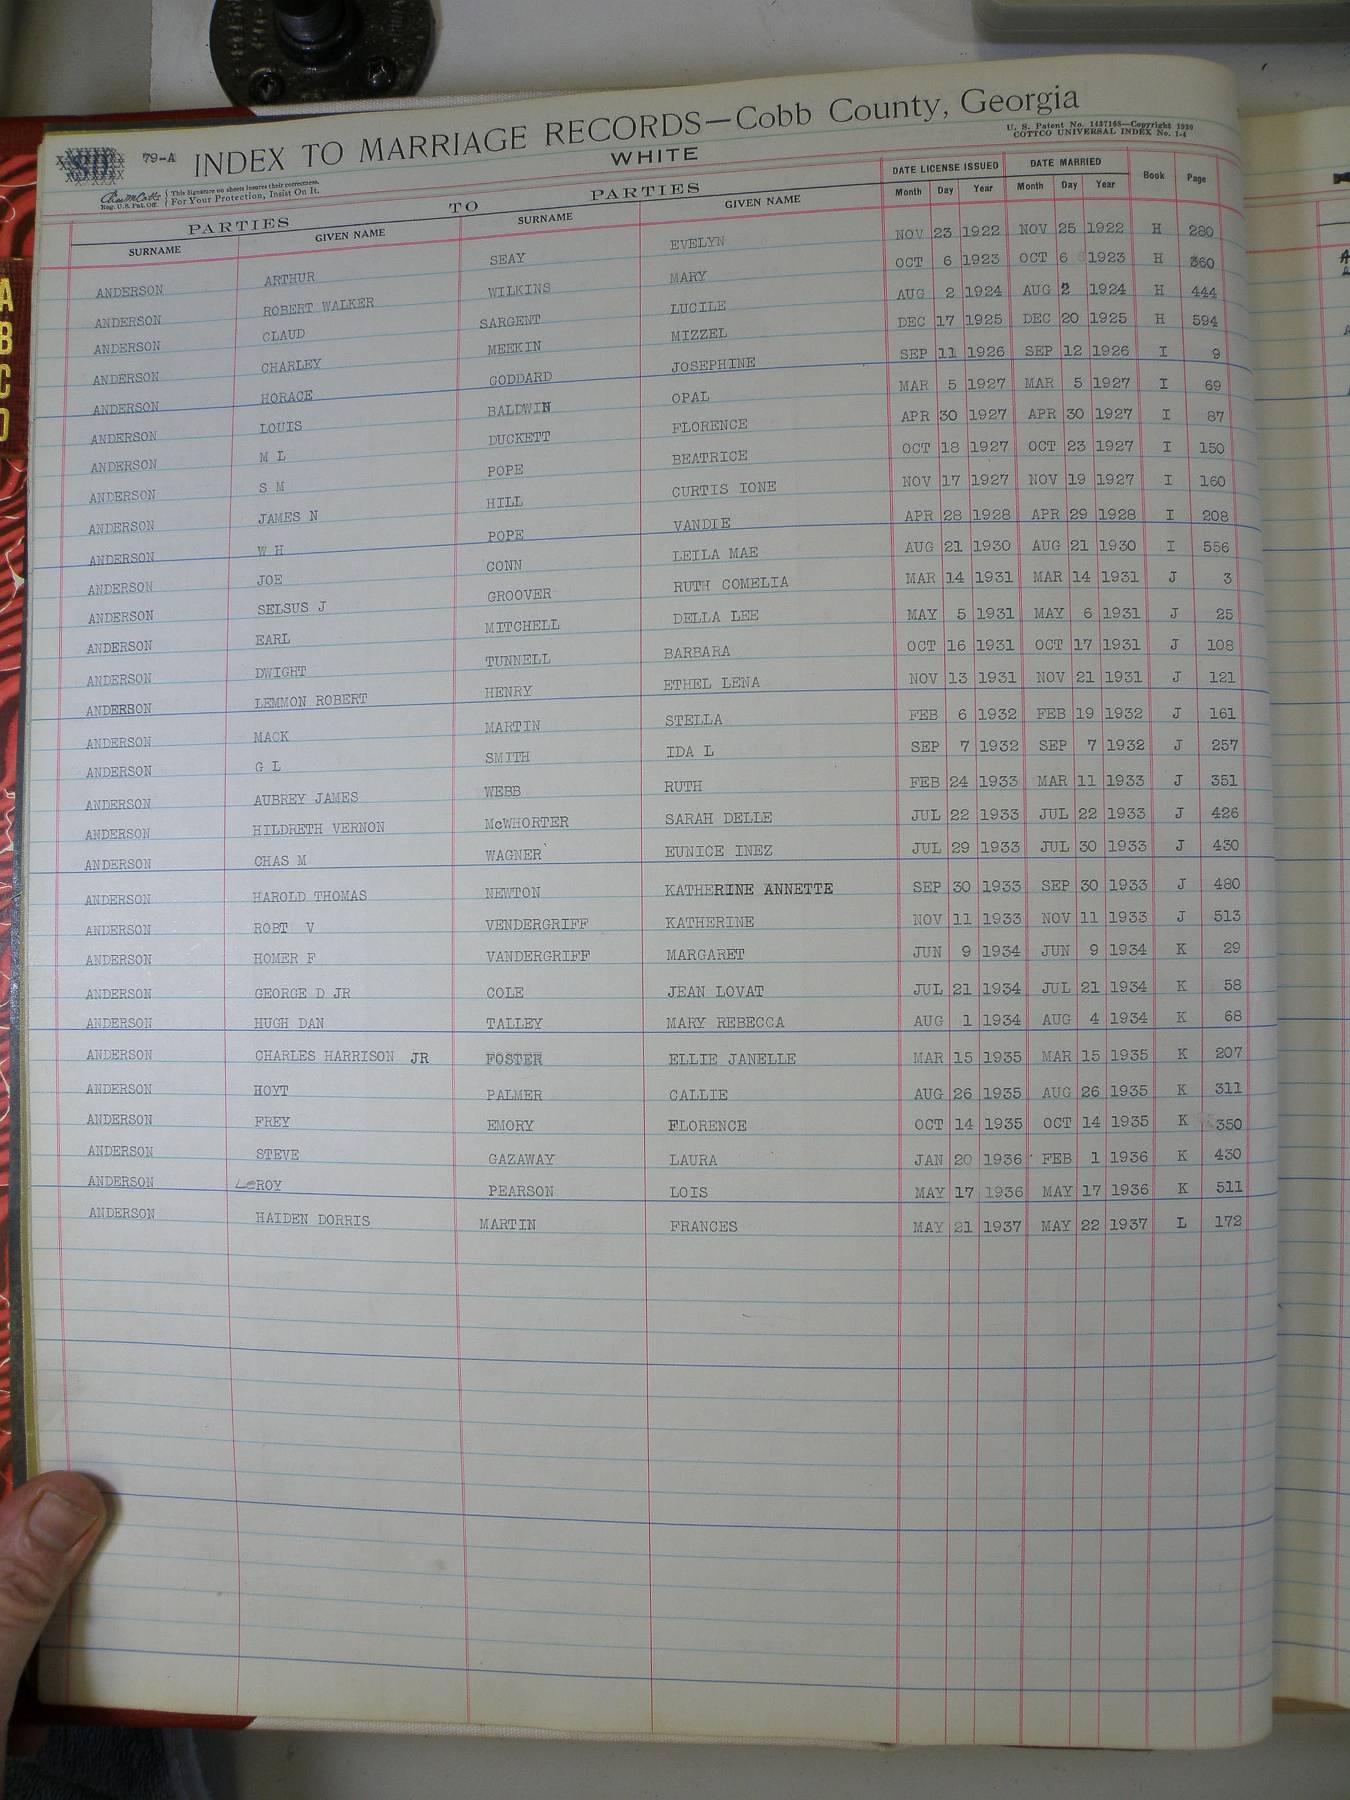 79-A INDEX TO MARRIAGE RECORDS—Cobb County, Georgia
U. S. Patent No. 1437165—Copyright 1930
COTTCO UNIVERSAL INDEX No. 1-4
WHITE
This Signature on sheets insures their correctness.
Reg. U.S. Pat. Off. For Your Protection, Insist On It.
PARTIES TO PARTIES DATE LICENSE ISSUED DATE MARRIED Book Page
SURNAME GIVEN NAME SURNAME GIVEN NAME Month Day Year Month Day Year
ANDERSON ARTHUR SEAY EVELYN NOV 23 1922 NOV 25 1922 H 280
ANDERSON ROBERT WALKER WILKINS MARY OCT 6 1923 OCT 6 1923 H 360
ANDERSON CLAUD SARGENT LUCILE AUG 2 1924 AUG 2 1924 H 444
ANDERSON CHARLEY MEEKIN MIZZEL DEC 17 1925 DEC 20 1925 H 594
ANDERSON HORACE GODDARD JOSEPHINE SEP 11 1926 SEP 12 1926 I 9
ANDERSON LOUIS BALDWIN OPAL MAR 5 1927 MAR 5 1927 I 69
ANDERSON M L DUCKETT FLORENCE APR 30 1927 APR 30 1927 I 87
ANDERSON S M POPE BEATRICE OCT 18 1927 OCT 23 1927 I 150
ANDERSON JAMES N HILL CURTIS IONE NOV 17 1927 NOV 19 1927 I 160
ANDERSON W H POPE VANDIE APR 28 1928 APR 29 1928 I 208
ANDERSON JOE CONN LEILA MAE AUG 21 1930 AUG 21 1930 I 556
ANDERSON SELSUS J GROOVER RUTH COMELIA MAR 14 1931 MAR 14 1931 J 3
ANDERSON EARL MITCHELL DELLA LEE MAY 5 1931 MAY 6 1931 J 25
ANDERSON DWIGHT TUNNELL BARBARA OCT 16 1931 OCT 17 1931 J 108
ANDERSON LEMMON ROBERT HENRY ETHEL LENA NOV 13 1931 NOV 21 1931 J 121
ANDERSON MACK MARTIN STELLA FEB 6 1932 FEB 19 1932 J 161
ANDERSON G L SMITH IDA L SEP 7 1932 SEP 7 1932 J 257
ANDERSON AUBREY JAMES WEBB RUTH FEB 24 1933 MAR 11 1933 J 351
ANDERSON HILDRETH VERNON McWHORTER SARAH DELLE JUL 22 1933 JUL 22 1933 J 426
ANDERSON CHAS M WAGNER EUNICE INEZ JUL 29 1933 JUL 30 1933 J 430
ANDERSON HAROLD THOMAS NEWTON KATHERINE ANNETTE SEP 30 1933 SEP 30 1933 J 480
ANDERSON ROBT V VENDERGRIFF KATHERINE NOV 11 1933 NOV 11 1933 J 513
ANDERSON HOMER F VANDERGRIFF MARGARET JUN 9 1934 JUN 9 1934 K 29
ANDERSON GEORGE D JR COLE JEAN LOVAT JUL 21 1934 JUL 21 1934 K 58
ANDERSON HUGH DAN TALLEY MARY REBECCA AUG 1 1934 AUG 4 1934 K 68
ANDERSON CHARLES HARRISON JR FOSTER ELLIE JANELLE MAR 15 1935 MAR 15 1935 K 207
ANDERSON HOYT PALMER CALLIE AUG 26 1935 AUG 26 1935 K 311
ANDERSON FREY EMORY FLORENCE OCT 14 1935 OCT 14 1935 K 350
ANDERSON STEVE GAZAWAY LAURA JAN 20 1936 FEB 1 1936 K 430
ANDERSON LeROY PEARSON LOIS MAY 17 1936 MAY 17 1936 K 511
ANDERSON HAIDEN DORRIS MARTIN FRANCES MAY 21 1937 MAY 22 1937 L 172
A
B
C
D